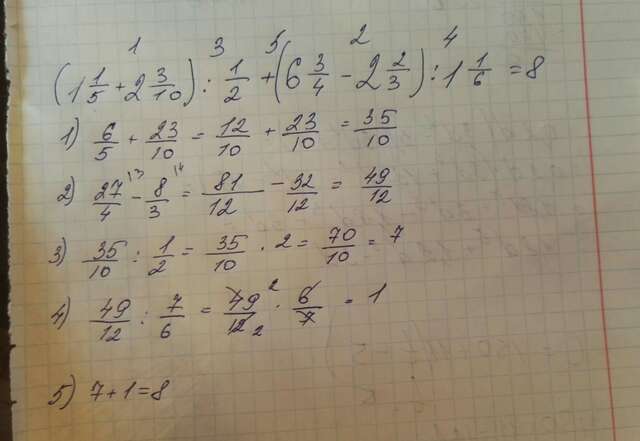 1 3 5 2 4
(1 1/5 + 2 3/10) : 1/2 + (6 3/4 - 2 2/3) : 1 1/6 = 8
1) 6/5 + 23/10 = 12/10 + 23/10 = 35/10
2) 27/4 - 8/3 = 81/12 - 32/12 = 49/12
3) 35/10 : 1/2 = 35/10 · 2 = 70/10 = 7
4) 49/12 : 7/6 = 49/12 2 · 6/7 = 1
5) 7 + 1 = 8